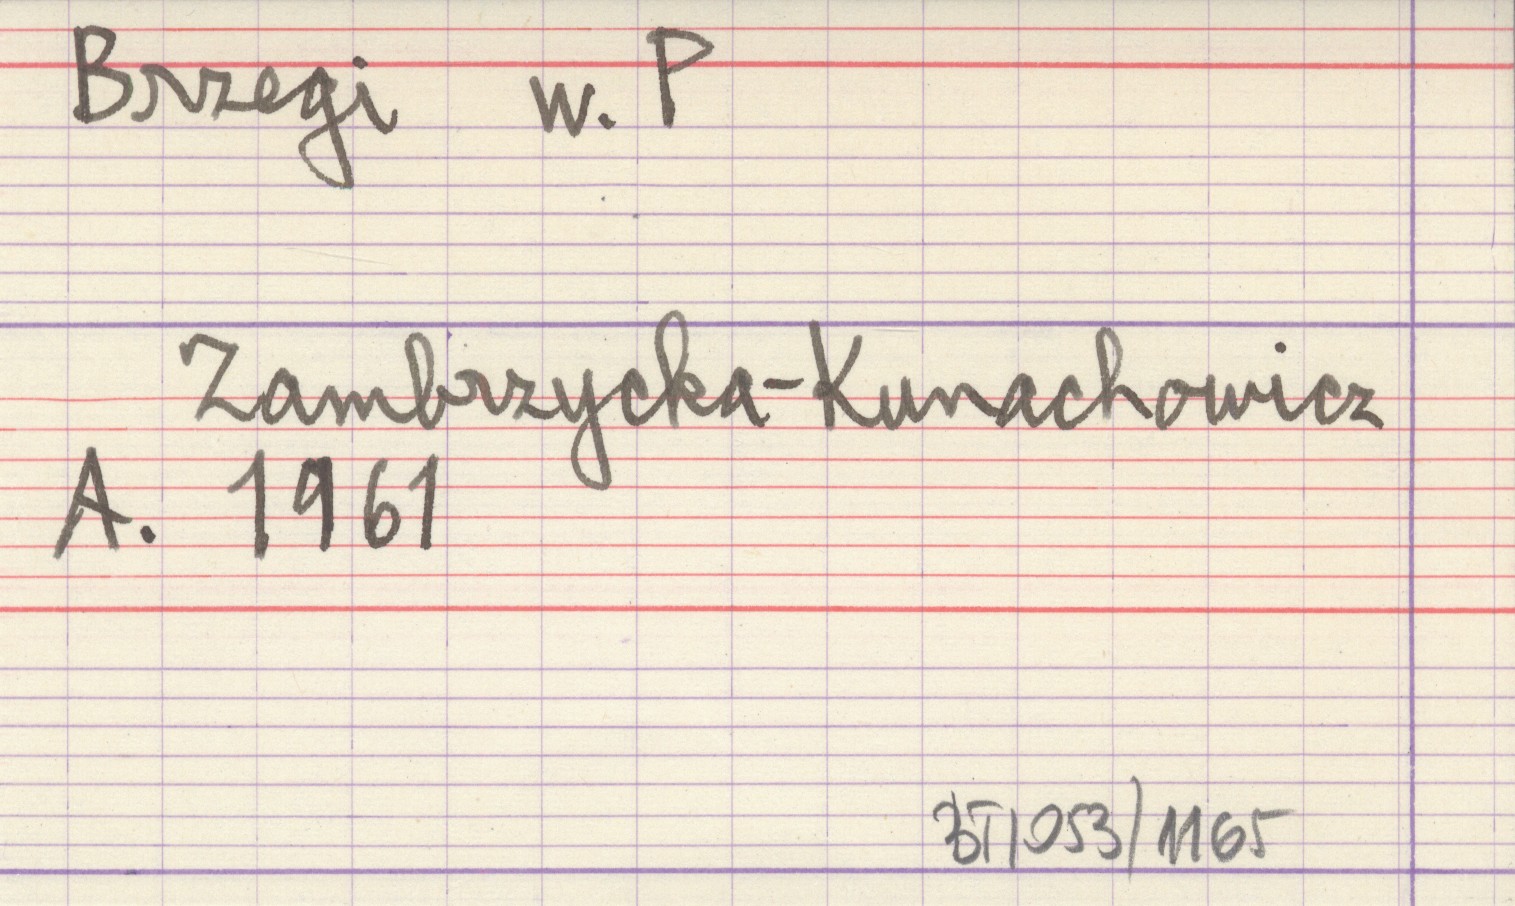 Brzegi w. P
Zambrzycka-Kunachowicz
A. 1961
BT/053/1165